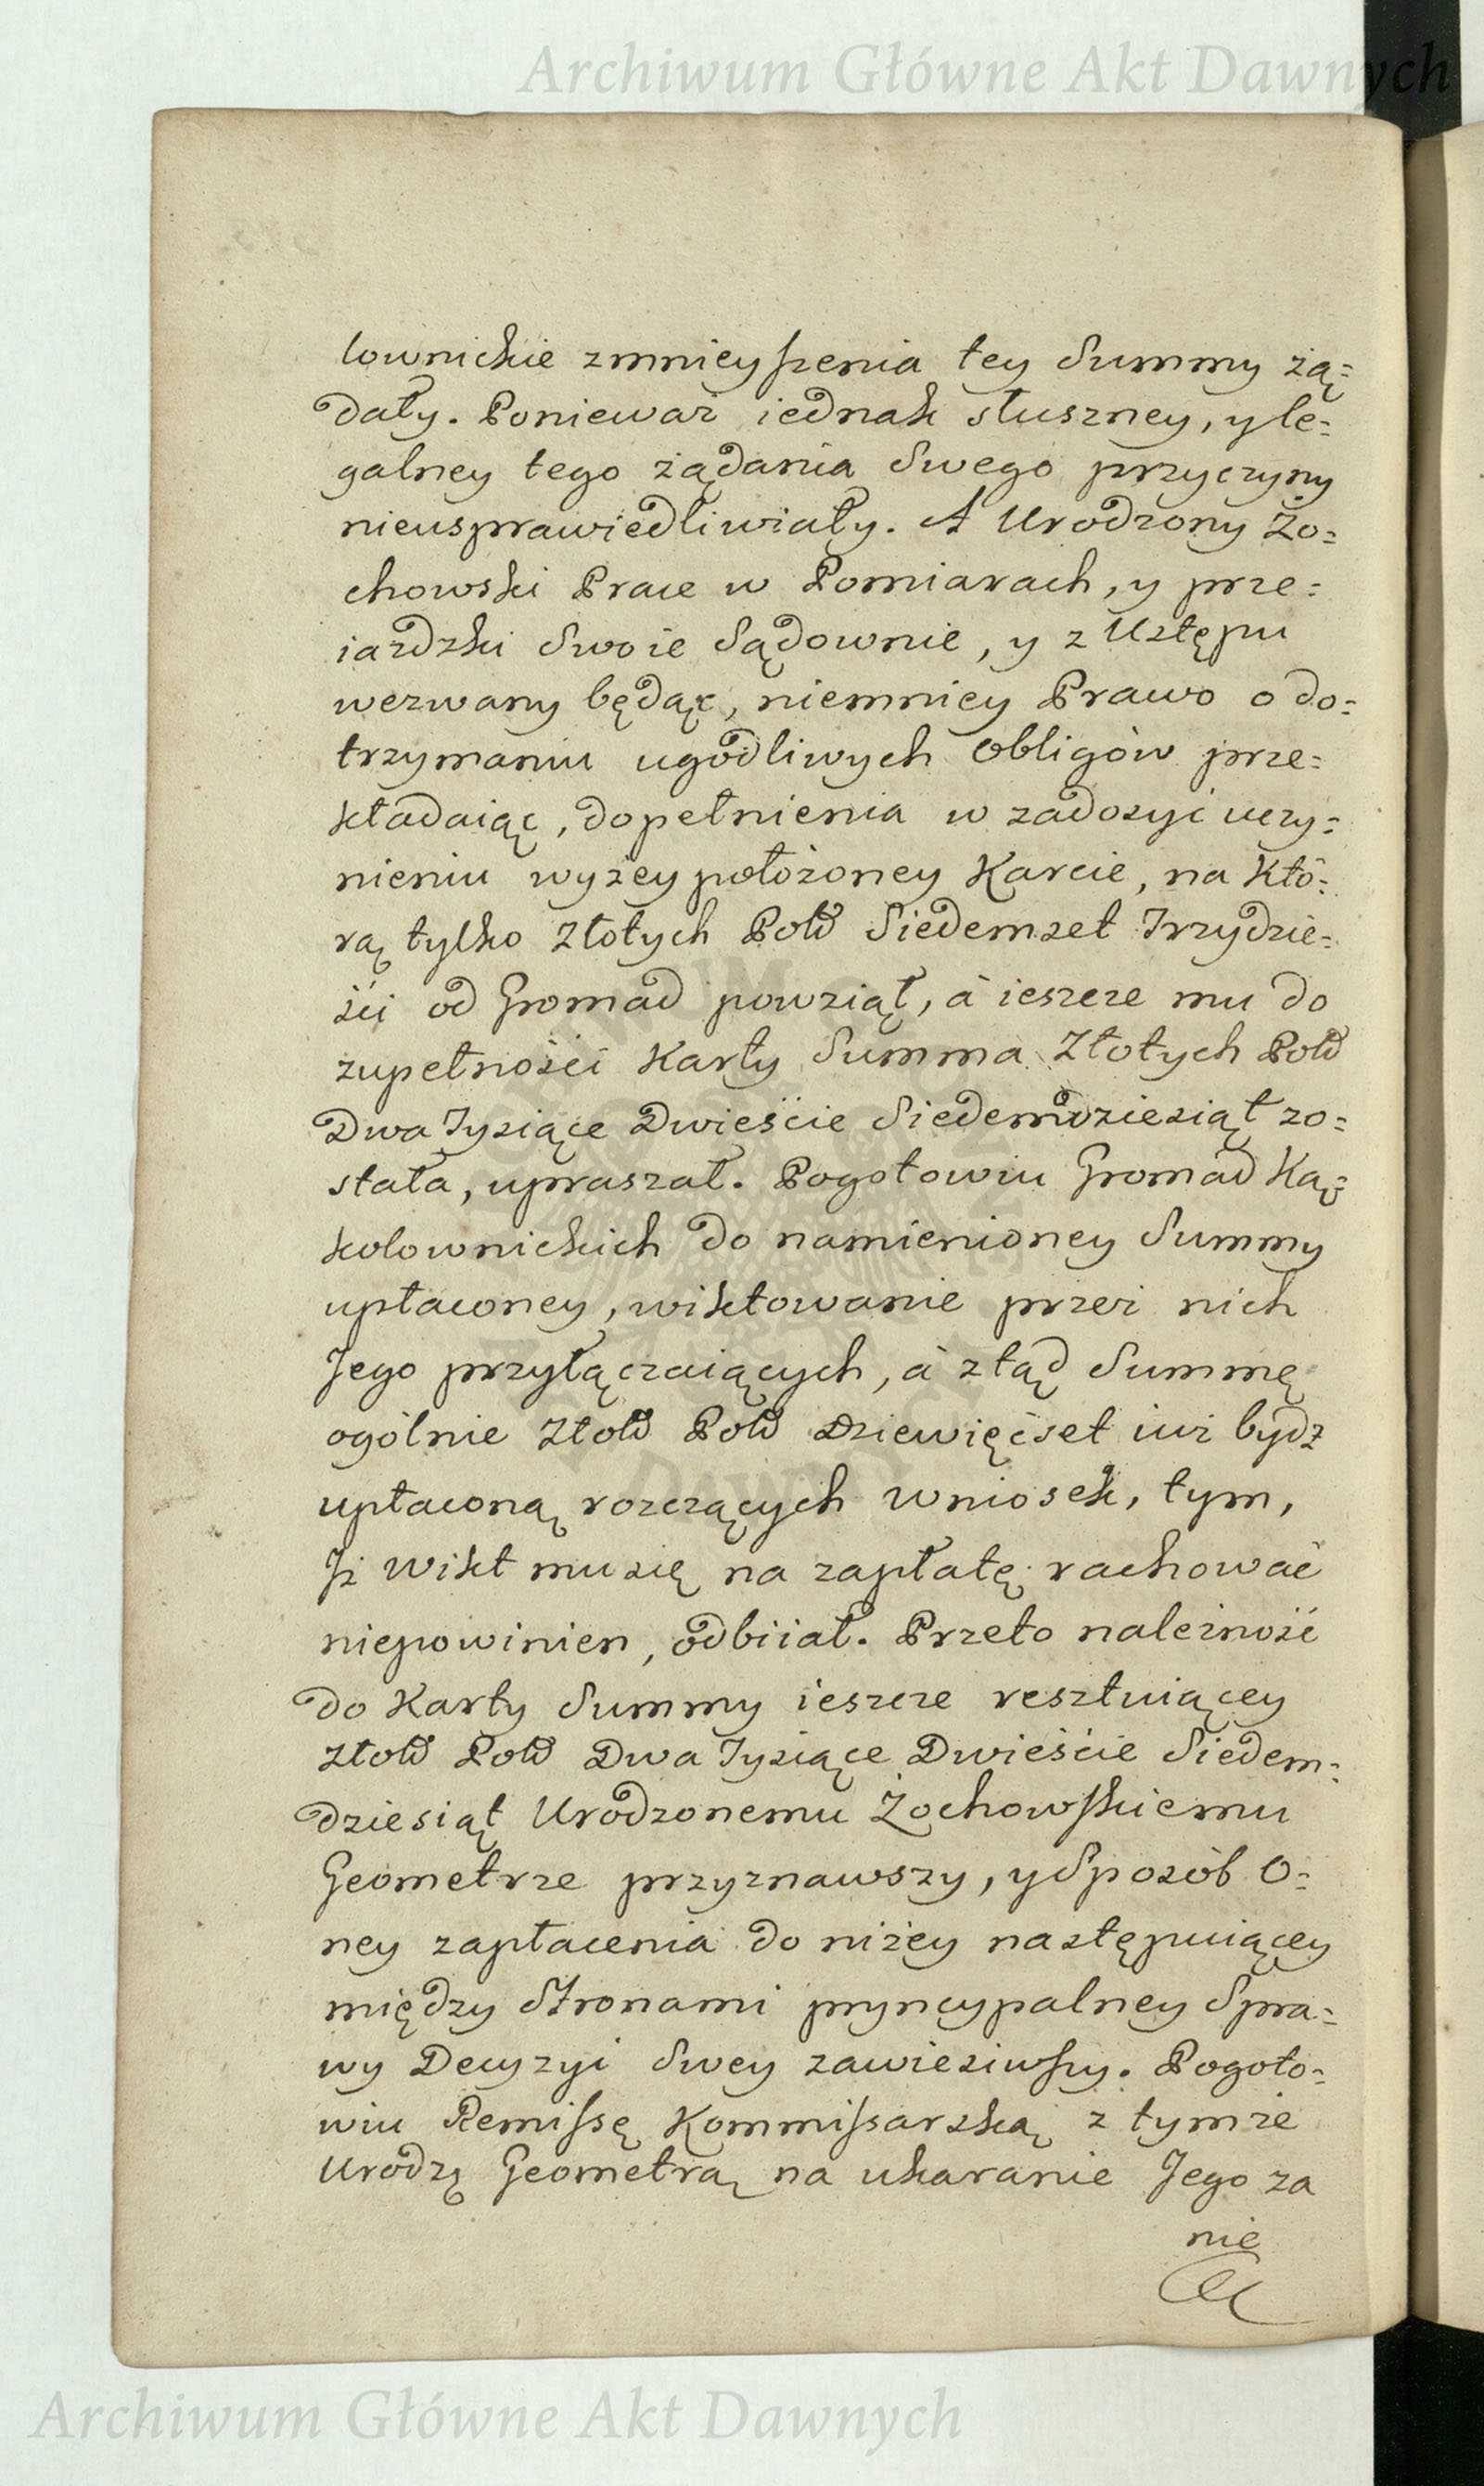 Archiwum Główne Akt Dawnych
lownickie zmnieyszenia tey Summy żą=
dały. Ponieważ iednak słuszney, y le=
galney tego żądania Swego przyczyny
nieusprawiedliwiały. A Urodzony Żo=
chowski Prace w Pomiarach, y prze=
iazdzki Swoie Sądownie, y z Ustępu
wezwany będąc, niemniey Prawo o do=
trzymaniu ugodliwych Obligów prze=
kładaiąc, dopełnienia w zadosyć uczy=
nieniu wyżey położoney Karcie, na Któ=
rą tylko Złotych Pold Siedemset Trzydzie=
ści od Gromad powziął, à ieszcze mu do
zupełności Karty Summa Złotych Pold
Dwa Tysiące Dwieście Siedemdziesiąt zo=
stała, upraszał. Pogotowiu Gromad Ką=
kolownickich do namienioney Summy
upłaconey, wiktowanie przez nich
Jego przyłączaiących, à ztąd Summę
ogólnie Złold Pold Dziewięćset iuż bydz
upłaconą rozczących wniosek, tym,
Iż Wikt mu się na zapłatę rachować
niepowinien, odbiiał. Przeto należność
do Karty Summy ieszcze resztuiącey
Złold Pold Dwa Tysiące Dwieście Siedem=
dziesiąt Urodzonemu Żochowskiemu
Geometrze przyznawszy, y Sposób O=
ney zapłacenia do niżey następuiącey
między Stronami pryncypalney Spra=
wy Decyzyi Swey zawiesiwszy. Pogoto=
wiu Remissę Kommissarską z tymże
Urodzą Geometrą na ukaranie Jego za
nie
Archiwum Główne Akt Dawnych